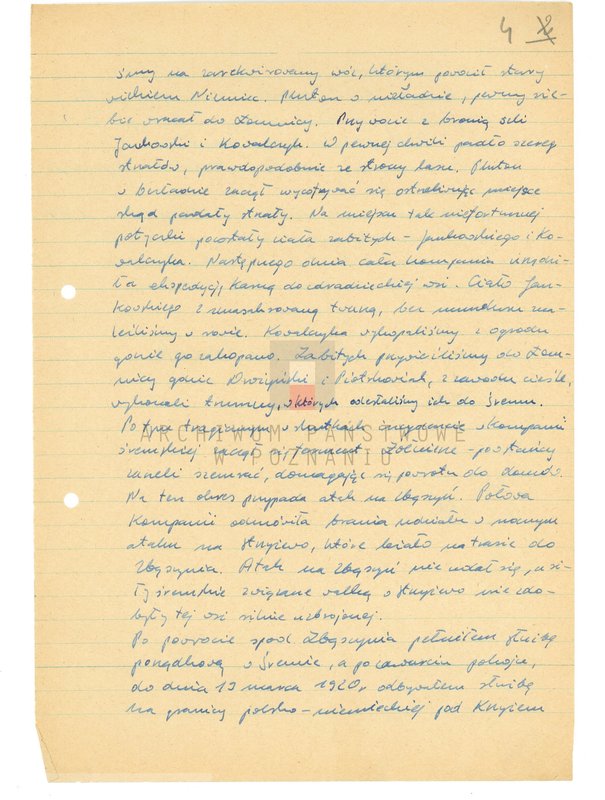 4
śmy na zarekwirowany wóz, którym powoził stary
wiekiem Niemiec. Pluton w nieładzie, pewny sie-
bie wracał do Łomnicy. Przy wozie z bronią szli
Jankowski i Kowalczyk. W pewnej chwili padło szereg
strzałów, prawdopodobnie ze strony lasu. Pluton
w bezładzie zaczął wycofywać się ostrzeliwując miejsce
skąd padały strzały. Na miejscu tak niefortunnej
potyczki pozostały ciała zabitych – Jankowskiego i Ko-
walczyka. Następnego dnia cała kompania urządzi-
ła ekspedycję karną do zdradzieckiej wsi. Ciało Jan-
kowskiego z zmasakrowaną twarzą, bez munduru zna-
leźliśmy w rowie. Kowalczyka wykopaliśmy z ogrodu
gdzie go zakopano. Zabitych przywieźliśmy do Łom-
nicy gdzie i Piotrkowiak, z zawodu cieśle,
wykonali trumny, w których odesłaliśmy ich do Śremu.
Po tym tragicznym w skutkach incydencie w Kompanii
śremskiej zaczął się ferment. Żołnierze – powstańcy
zaczęli szemrać, domagając się powrotu do domów.
Na ten okres przypada atak na Zbąszyń. Połowa
Kompanii odmówiła brania udziału w nocnym
ataku na Strzyżewo, które leżało na trasie do
Zbąszynia. Atak na Zbąszyń nie udał się, a si-
ły śremskie związane walką o Strzyżewo nie zdo-
były tej wsi silnie uzbrojonej.
Po powrocie spod Zbąszynia pełniłem służbę
porządkową w Śremie, a po zawarciu pokoju,
do dnia 19 marca 1920 r odbywałem służbę
na granicy polsko-niemieckiej pod Krzyżem
ARCHIWUM PAŃSTWOWE
W POZNANIU